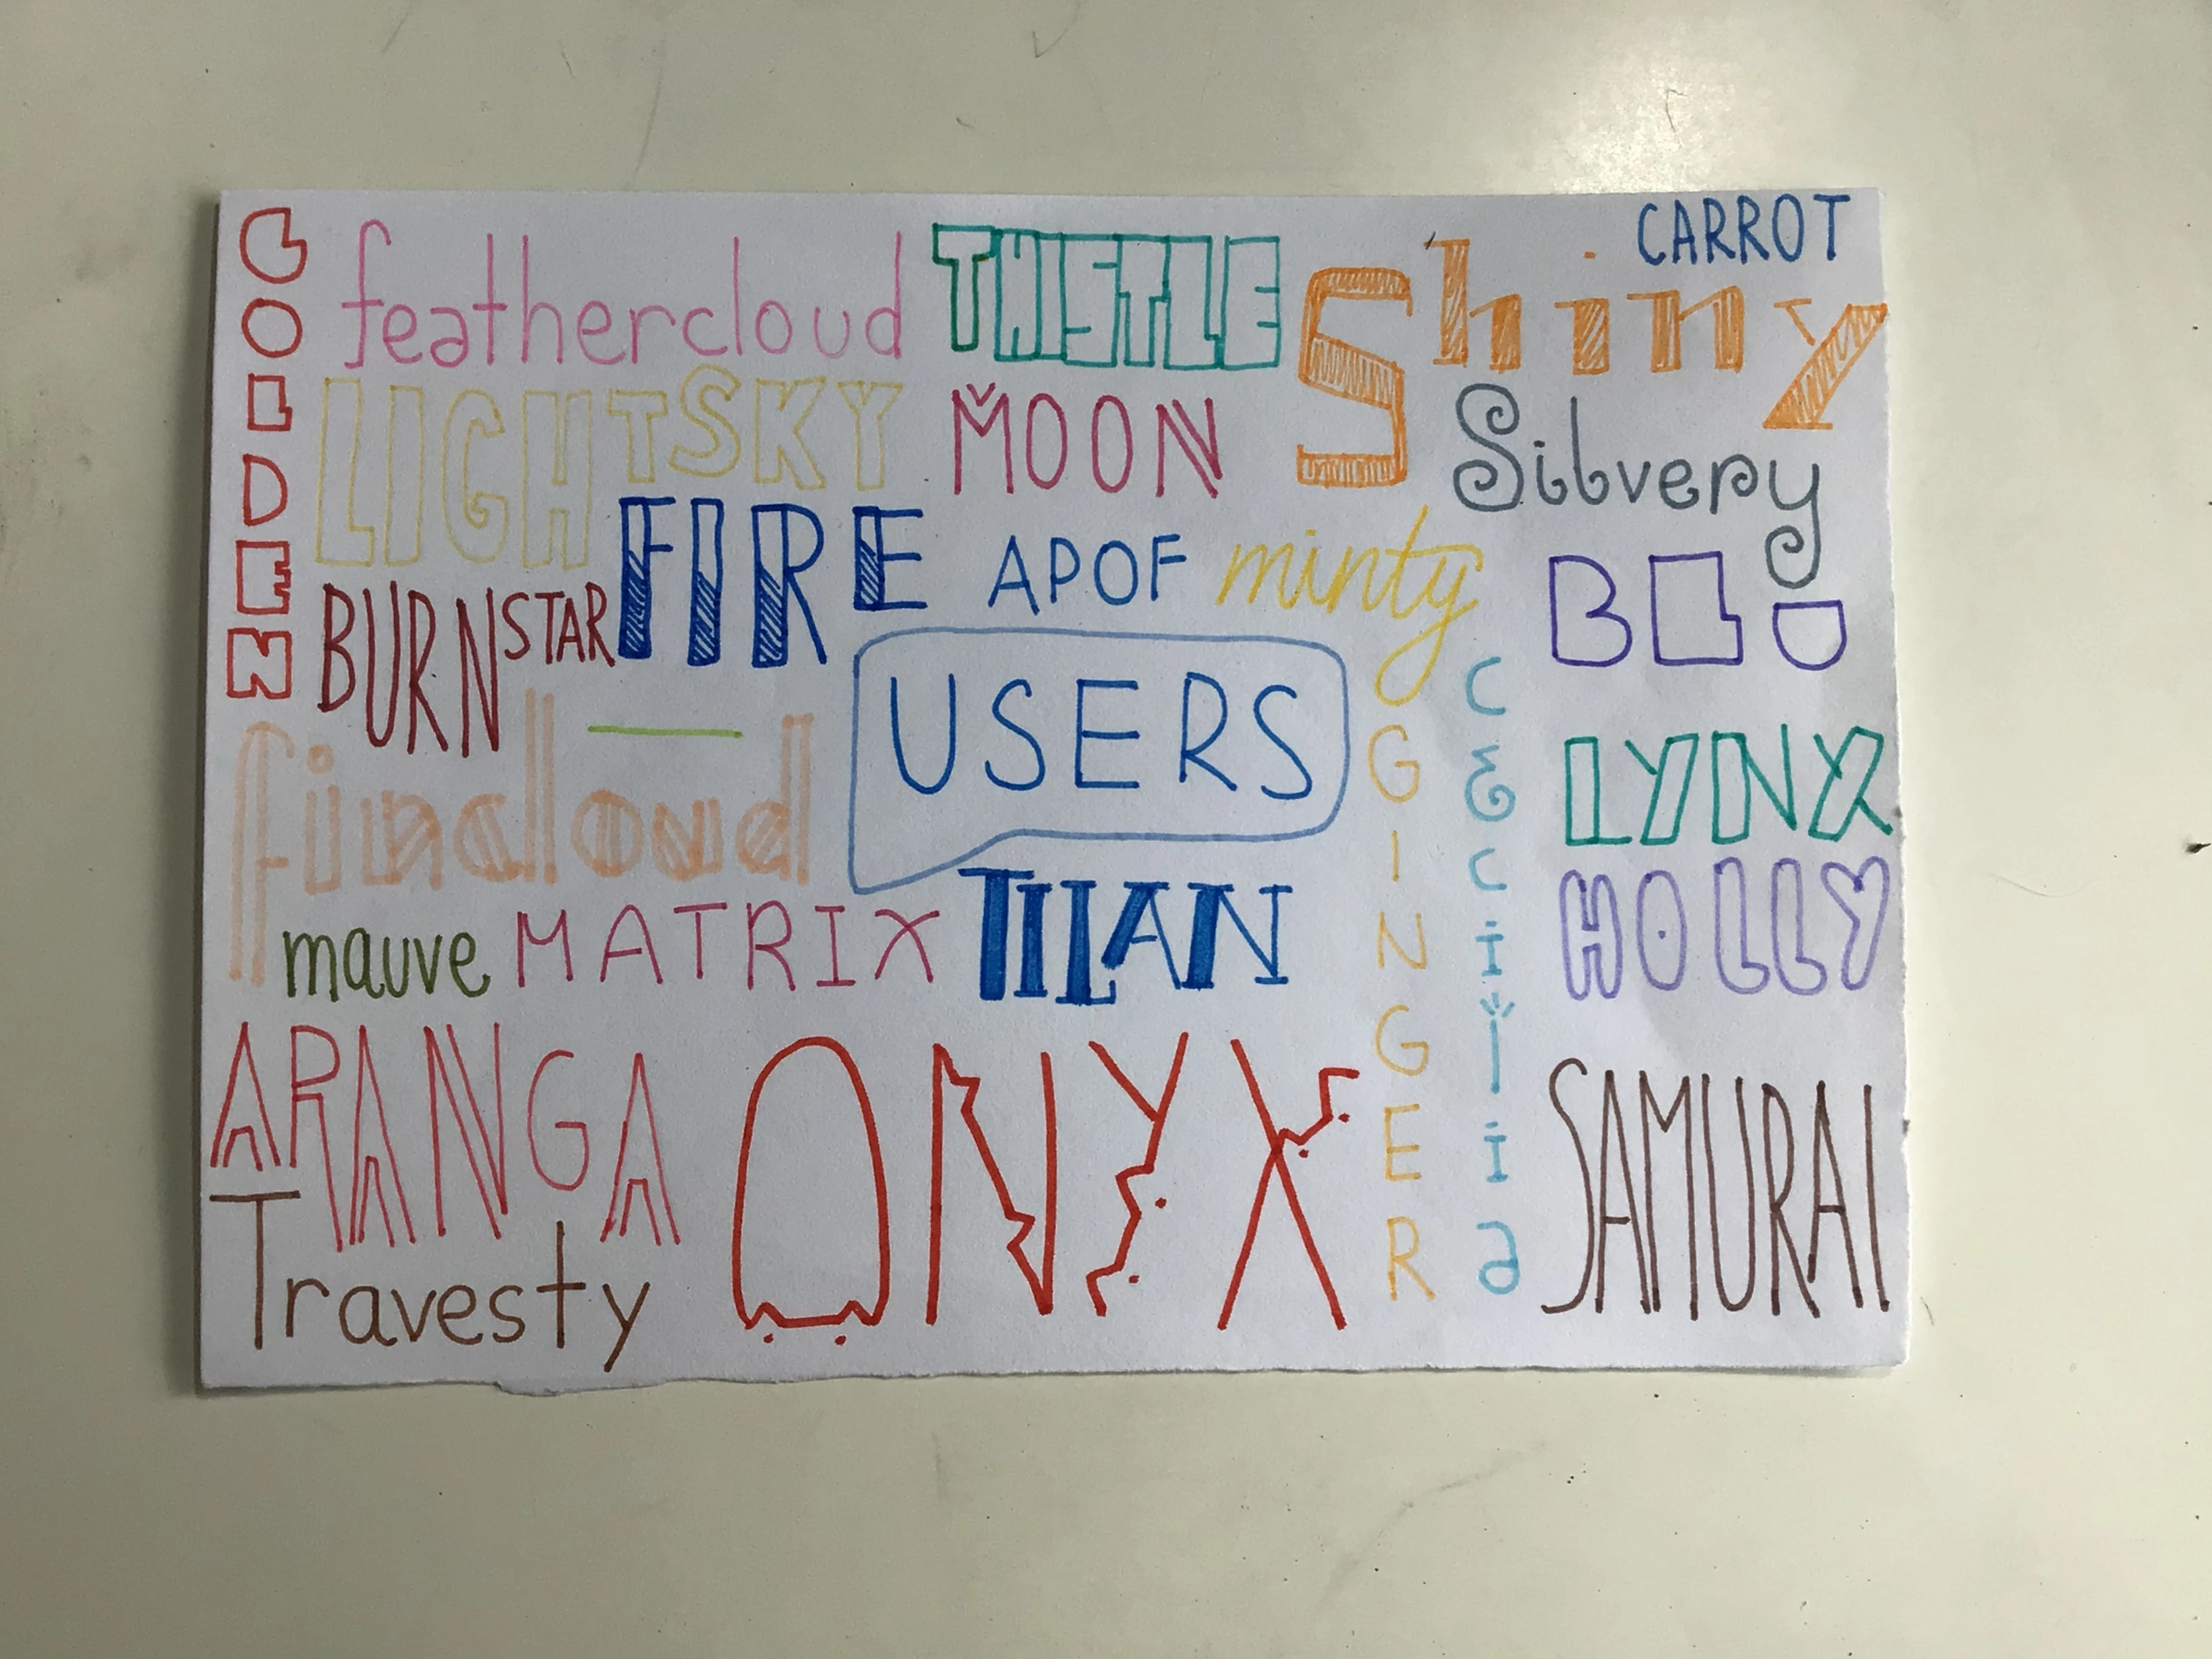 GOLDEN
feathercloud
THISTLE
Shiny
CARROT
LIGHTSKY
MOON
Silvery
BURNSTAR
FIRE
APOF
minty
BLU
fincloud
USERS
GINGER
CECIlia
LYNX
HOLLY
mauve
MATRIX
TITAN
ARANGA
ONYX
SAMURAI
Travesty